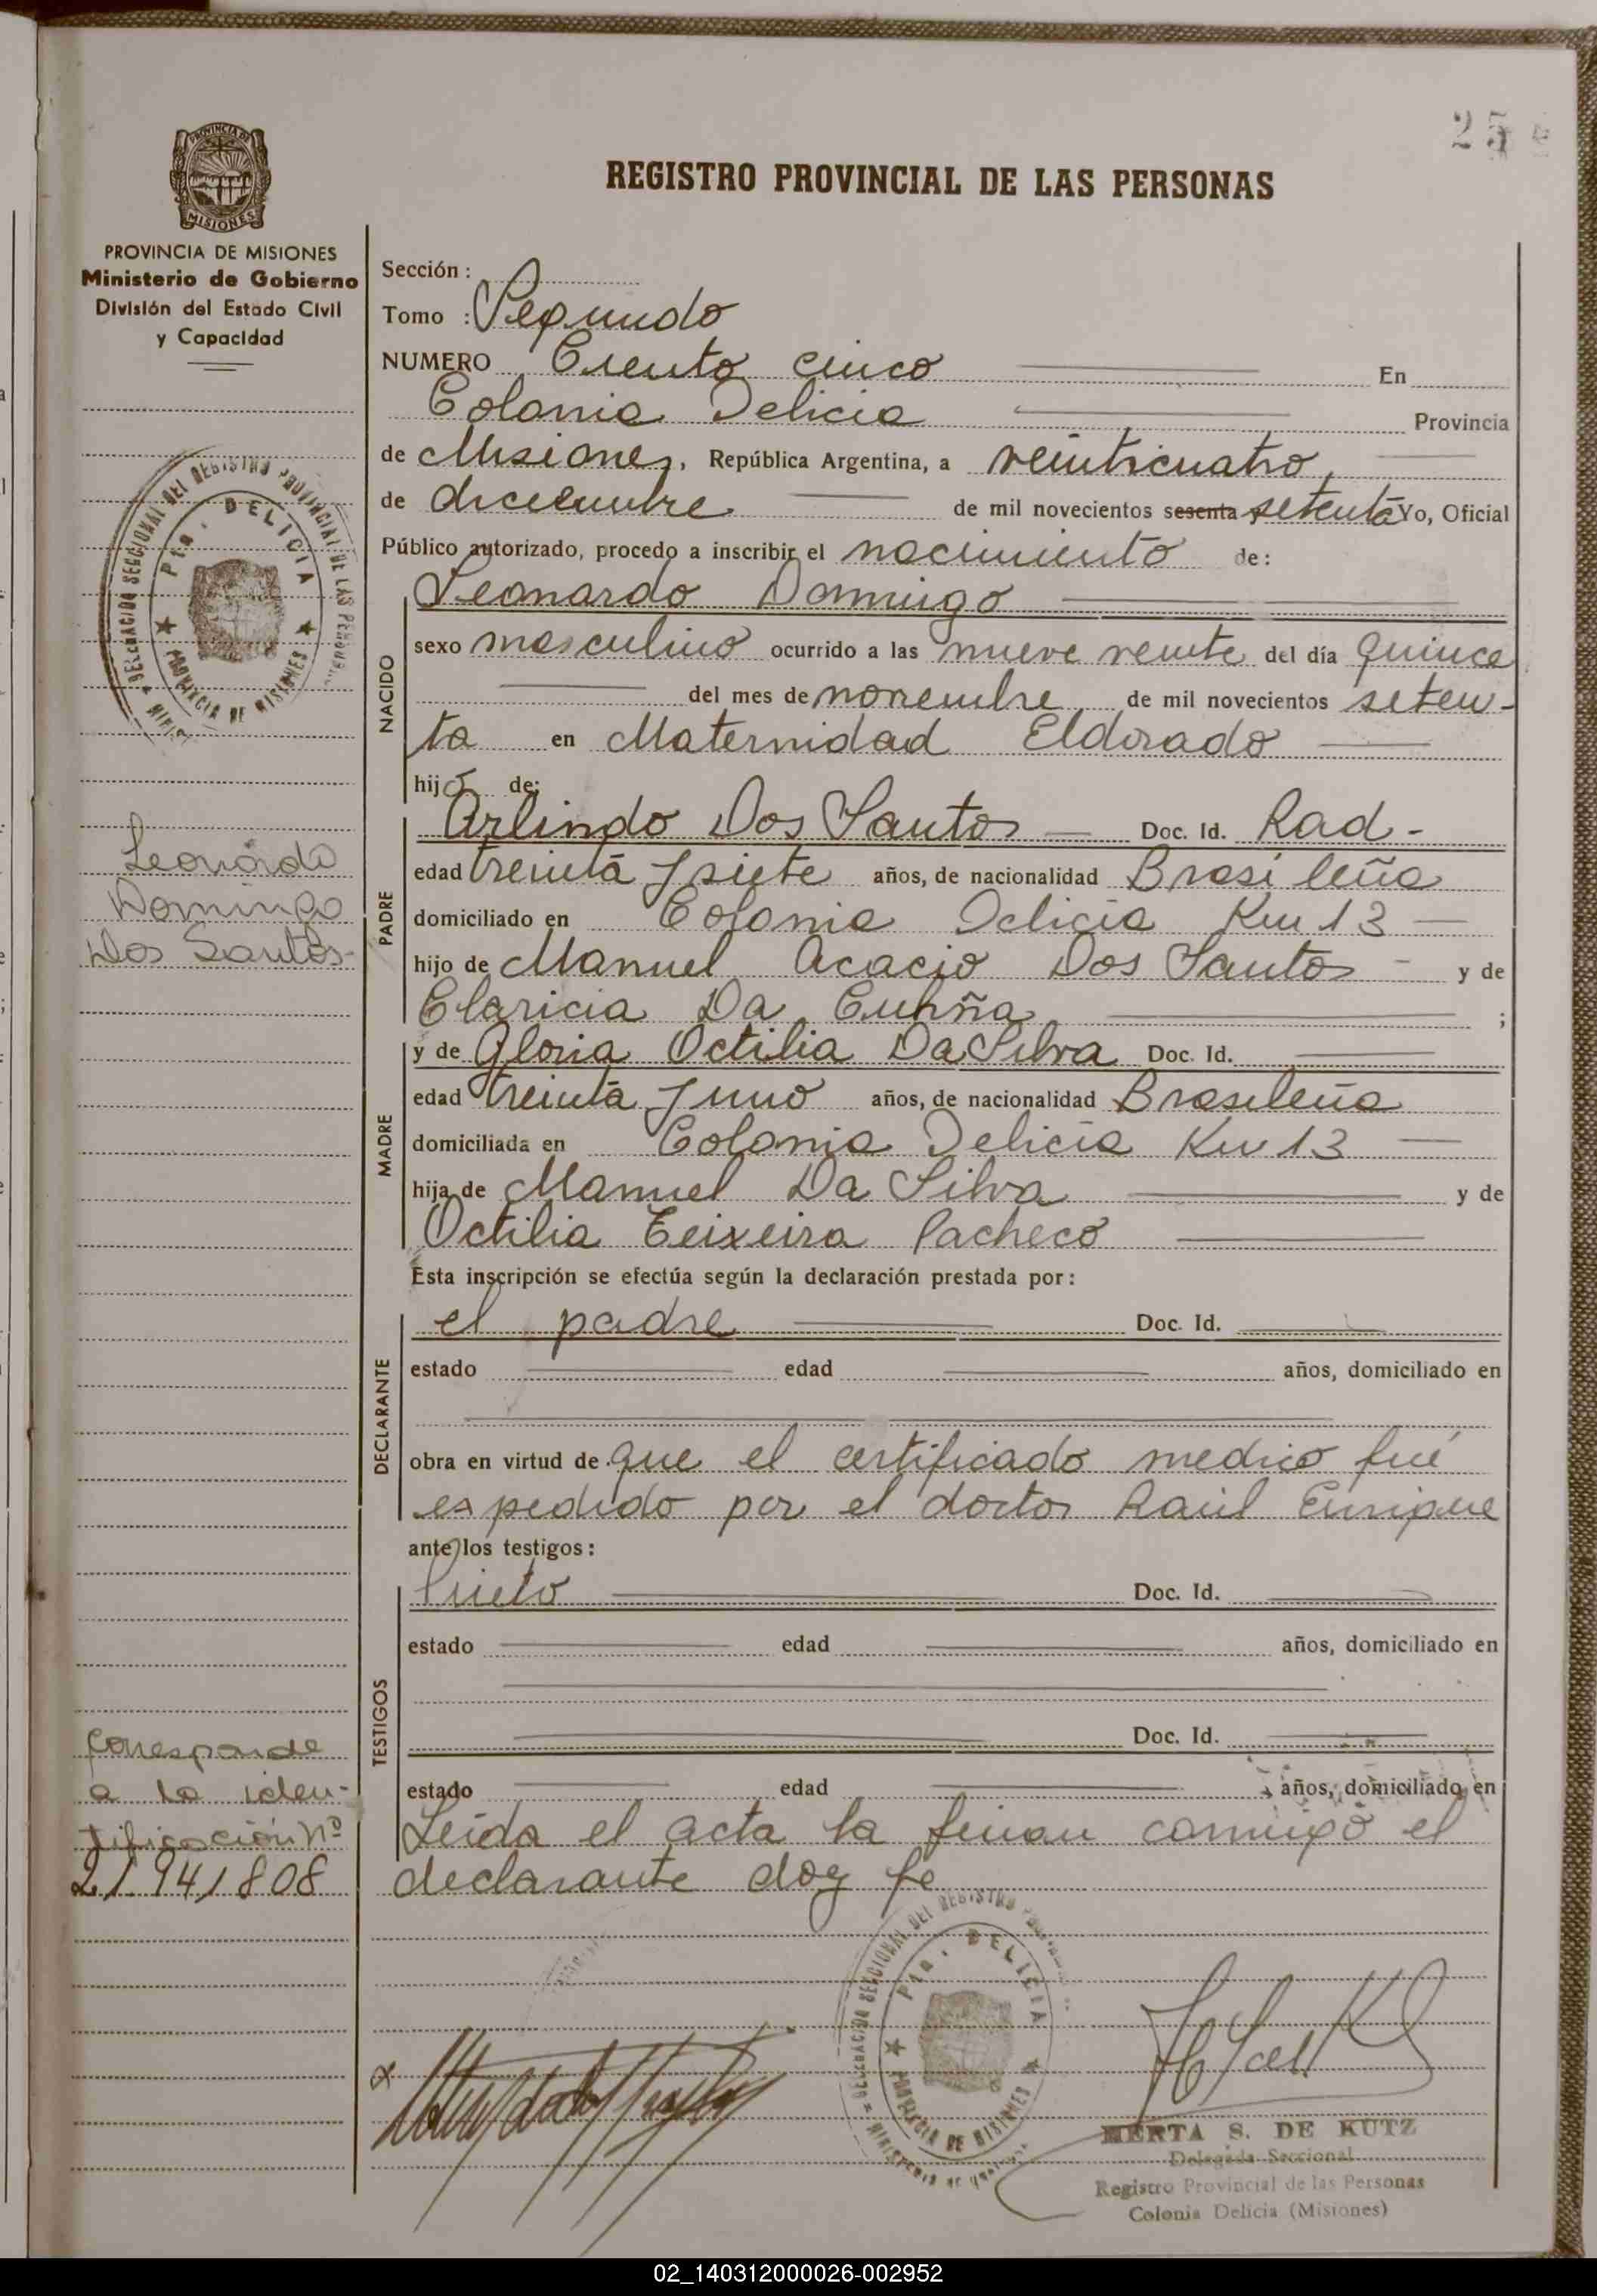 25
REGISTRO PROVINCIAL DE LAS PERSONAS
PROVINCIA DE
MISIONES
PROVINCIA DE MISIONES
Ministerio de Gobierno
División del Estado Civil
y Capacidad
DELEGACION SECCIONAL DEL REGISTRO PROVINCIAL DE LAS
Pto. DELICIA
PROVINCIA DE MISIONES
Leonardo
Domingo
Dos Santos-
Corresponde
a la iden-
tificación Nº
21.941808
Sección :
Tomo : Segundo
NUMERO Ciento cinco En
Colonia Delicia Provincia
de Misiones, República Argentina, a veinticuatro,
de diciembre de mil novecientos sesenta setenta Yo, Oficial
Público autorizado, procedo a inscribir el nacimiento de:
NACIDO
Leonardo Domingo
sexo masculino ocurrido a las nueve veinte del día quince
del mes de noviembre de mil novecientos seten-
ta en Maternidad Eldorado
hijo de:
PADRE
Arlindo Dos Santos — Doc. Id. Rad-
edad treinta y siete años, de nacionalidad Brasileña
domiciliado en Colonia Delicia Km 13 —
hijo de Manuel Acacio Dos Santos - y de
Claricia Da Cunhña ;
MADRE
y de Gloria Octilia Da Silva Doc. Id.
edad treinta y uno años, de nacionalidad Brasileña
domiciliada en Colonia Delicia Km 13 —
hija de Manuel Da Silva y de
Octilia Teixeira Pacheco
Esta inscripción se efectúa según la declaración prestada por:
DECLARANTE
el padre Doc. Id.
estado edad años, domiciliado en
obra en virtud de que el certificado medico fué
espedido por el doctor Raúl Enrique
ante los testigos:
TESTIGOS
Prieto Doc. Id.
estado edad años, domiciliado en
Doc. Id.
estado edad años, domiciliado en
Leída el acta la firman conmigo el
declarante doy fe
DELEGACION SECCIONAL DEL REGISTRO
Pto. DELICIA
PROVINCIA DE MISIONES
HERTA S. DE KUTZ
Delegada Seccional
Registro Provincial de las Personas
Colonia Delicia (Misiones)
02_140312000026-002952